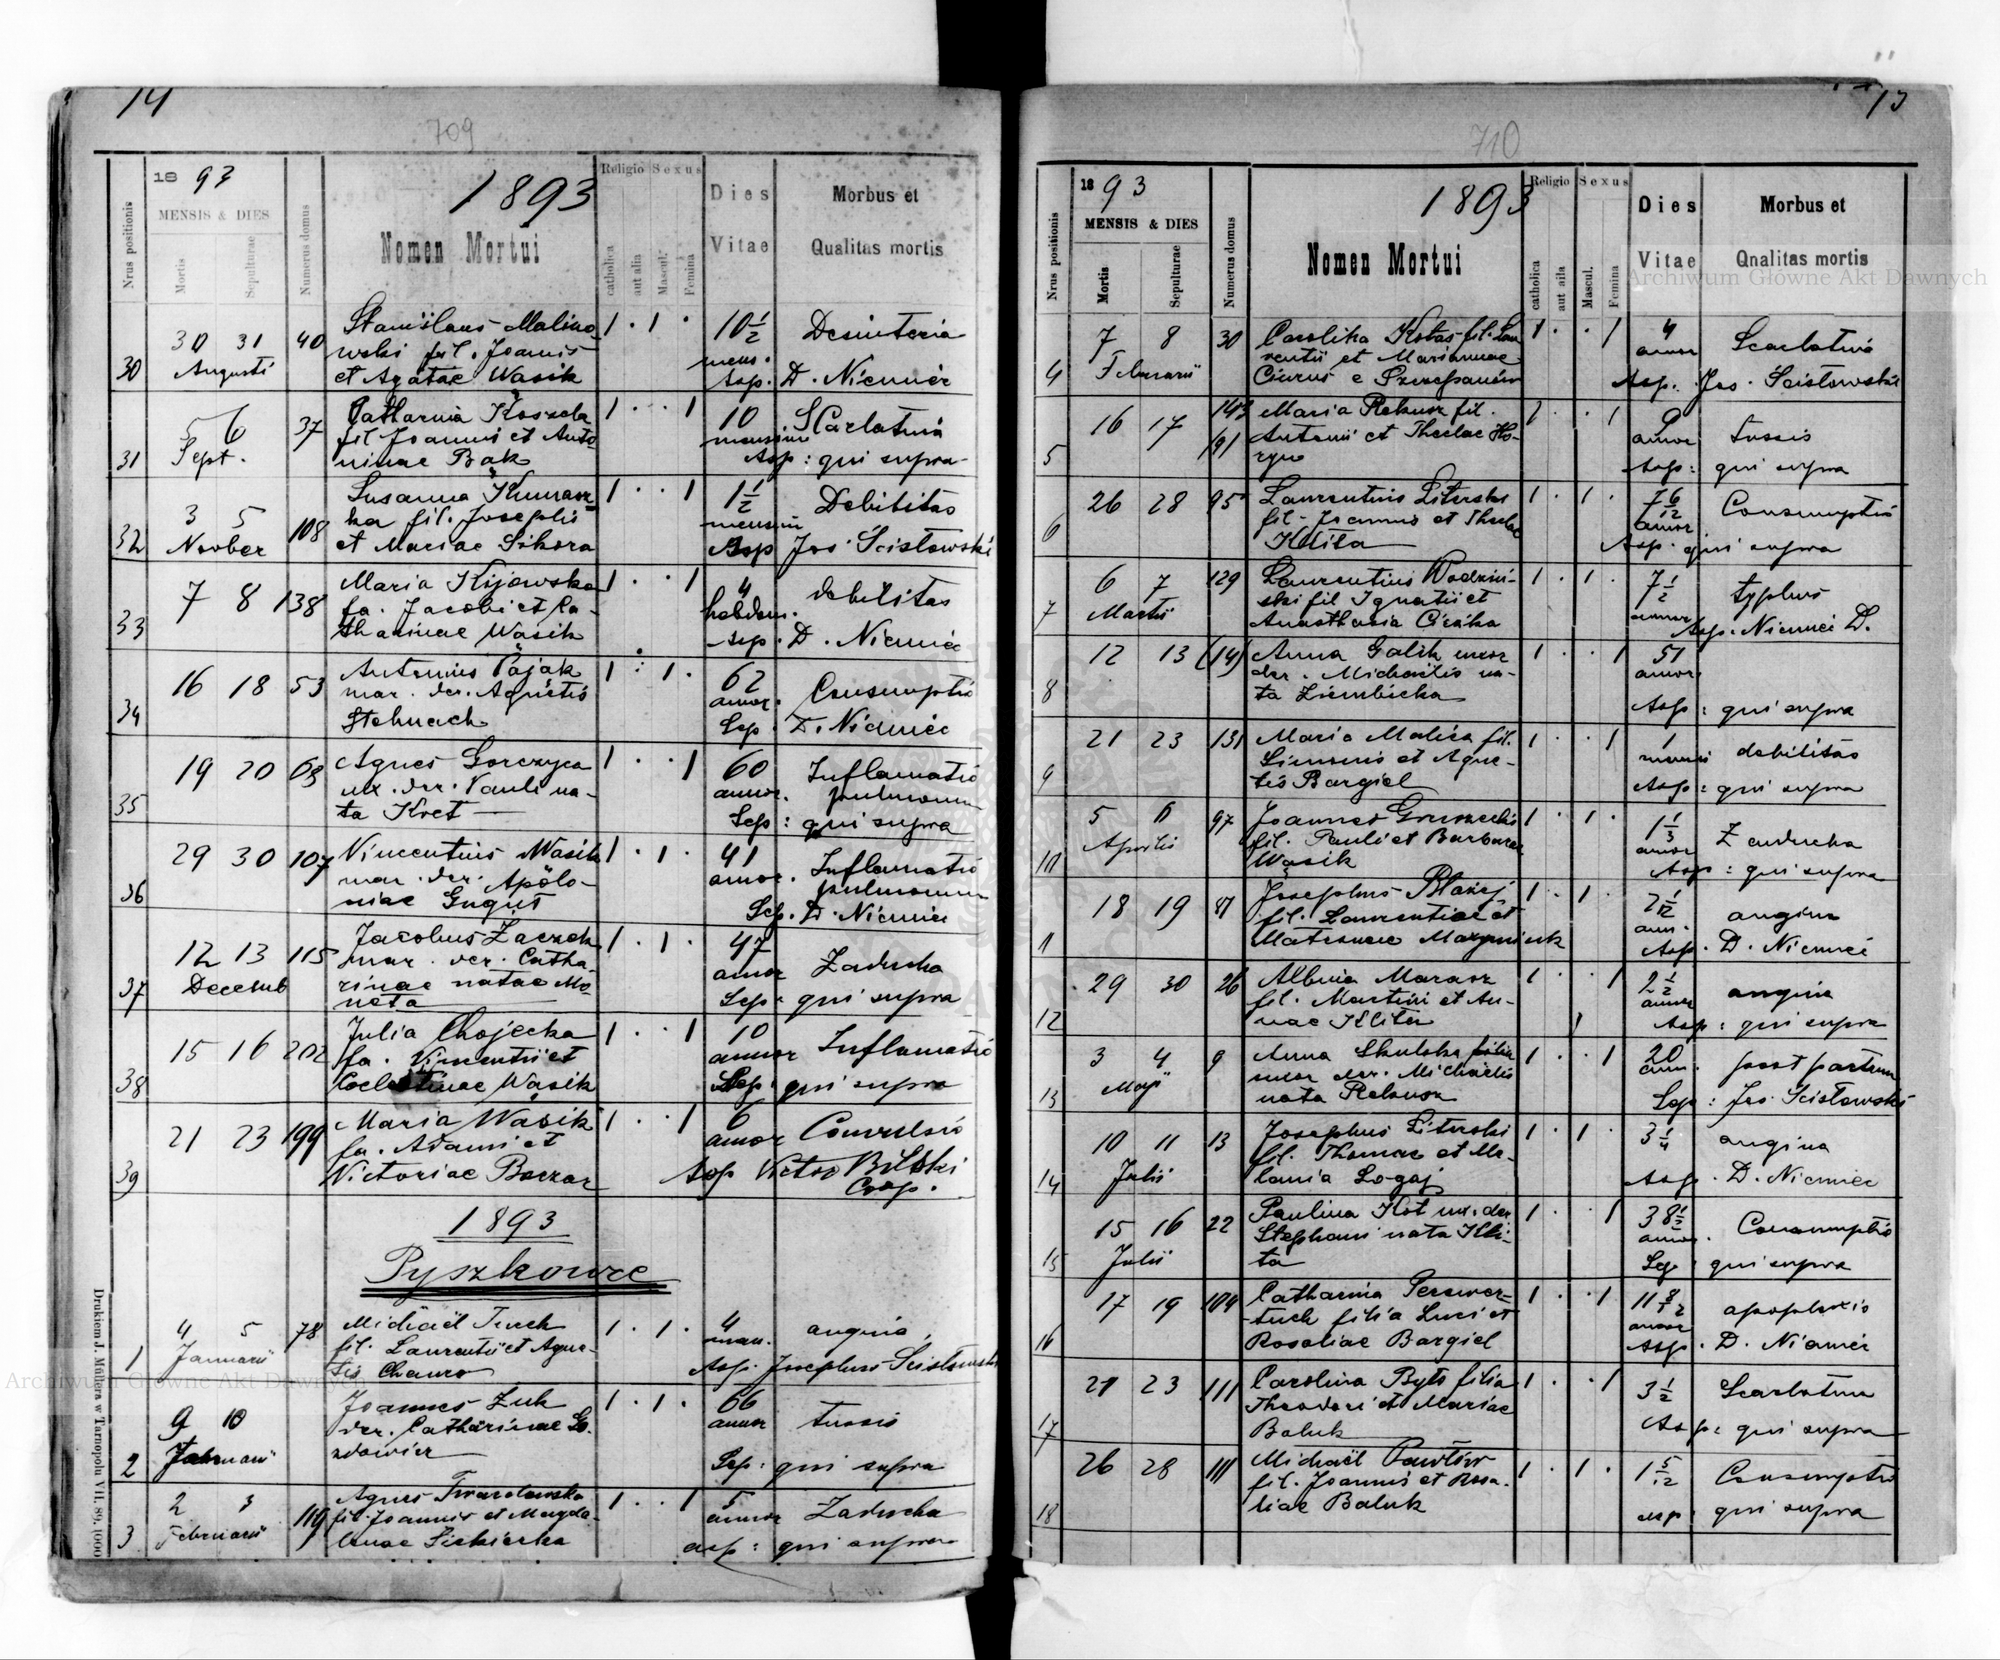 14
709
18 93
MENSIS & DIES
Nrus positionis
Mortis
Sepulturae
Numerus domus
1893
Nomen Mortui
Religio
catholica
aut alia
Sexus
Mascul.
Femina
Dies
Vitae
Morbus et
Qualitas mortis
30
30 31
Augusti
40
Stanislaus Malino-
wski fil. Joannis
et Agatae Wąsik
1 · 1 ·
10 1/2
mens.
Desinteria
Asp. D. Niemiec
31
5 6
Sept.
37
Catharina Koszela
fil Joannis et Anto-
ninae Bąk
1 · · 1
10
mensium
Scarlatina
Asp: qui supra
32
3 5
Novber
108
Susanna
ka fil. Josephi
et Mariae Sikora
1 · · 1
1 1/2
mensium
Debilitas
Asp Jos. Ścisłowski
33
7 8
138
Maria Kijowska
fa. Jacobi et Ca-
tharinae Wąsik
1 · · 1
4
hebdom.
debilitas
Asp. D. Niemiec
34
16 18
53
Antonius Pająk
mar. der. Agnetis
Stelmach
1 · 1 ·
62
annor.
Consumptio
Sep. D. Niemiec
35
19 20
68
Agnes Gorczyca
ux. der. Pauli na-
ta Kret
1 · · 1
60
annor.
Inflamatio
pulmonum
Sep: qui supra
36
29 30
107
Vincentius Wąsik
mar. der. Apolo-
niae Gugut
1 · 1 ·
41
annor.
Inflamatio
pulmonum
Sep. D. Niemiec
37
12 13
Decemb
115
Jacobus Żaczek
mar. der. Catha-
rinae natae Mo-
neta
1 · 1 ·
47
annor
Zaducha
Sep: qui supra
38
15 16
202
Julia Chojecka
fa. Vincentii et
Coelestinae Wąsik
1 · · 1
10
annor
Inflamatio
Sep: qui supra
39
21 23
199
Maria Wąsik
fa. Adami et
Victoriae Baczar
1 · · 1
6
annor
Convulsio
Asp Victor Bilski
Coop.
1893
Pyszkowce
1
4 5
Januarii
78
Michaël Turek
fil. Laurentii et Agne-
tis
1 · 1 ·
4
angina
Asp. Josephus Ścisłowski
2
9 10
Februarii
Joannes Żuk
der. Catharinae
1 · 1 ·
66
annor
tussis
Sep: qui supra
3
2 3
Februarii
119
Agnes Twardowska
fil. Joannis et Magda-
lenae Siekierka
1 · · 1
5
annor
Zaducha
asp: qui supra
Drukiem J. Móllera w Tarnopolu VII. 89. 1000
Archiwum Główne Akt Dawnych
13
710
18 93
MENSIS & DIES
Nrus positionis
Mortis
Sepulturae
Numerus domus
1893
Nomen Mortui
Religio
catholica
aut aila
Sexus
Mascul.
Femina
Dies
Vitae
Morbus et
Qnalitas mortis
Archiwum Główne Akt Dawnych
4
7 8
Februarii
30
Carolina Kotas fil. Lau-
rentii et Mariannae
e Szczepanów
1 · · 1
4
annor
Scarlatina
Asp. Jos. Ścisłowski
5
16 17
143
191
Maria Rekusz fil.
Antonii et Theclae Ho-
ryn
1 · · 1
9
annor
tussis
Asp: qui supra
6
26 28
95
Laurentius Literski
fil. Joannis et Theclae
Klita
1 · 1 ·
7 6/12
annor
Consumptio
Asp. qui supra
7
6 7
Martii
129
Laurentius Wodziń-
ski fil Ignatii et
Anasthasia
1 · 1 ·
7 1/2
annor
typhus
Asp. Niemiec D.
8
12 13
(14)
Anna Galik uxor
der. Michaelis na-
ta Ziembicka
1 · · 1
51
annor
Asp: qui supra
9
21 23
131
Maria Malica fil.
Simonis et Agne-
tis Bargiel
1 · · 1
1
mensis
debilitas
Asp: qui supra
10
5 6
Aprilis
97
Joannes Gruszecki
fil. Pauli et Barbarae
Wąsik
1 · 1 ·
1 1/3
annor
Zaducha
Asp: qui supra
11
18 19
87
Josephus Błażej
fil. Laurentiae et
1 · 1 ·
2 1/12
ann.
angina
Asp. D. Niemiec
12
29 30
26
Albina Marasz
fil. Martini et An-
nae Klita
1 · · 1
2 1/2
annor
angina
Asp: qui supra
13
3 4
Maji
9
Anna Skulska filia
uxor der. Michaelis
nata Rekusz
1 · · 1
20
ann.
post partum
Sep: Jos. Ścisłowski
14
10 11
Julii
13
Josephus Literski
fil. Thomae et Me-
lania Łogaj
1 · 1 ·
3 1/4
angina
Asp. D. Niemiec
15
15 16
Julii
22
Paulina Kot ux. der
Stephani nata Kli-
ta
1 · · 1
38 1/2
annor.
Consumptio
Sep: qui supra
16
17 19
104
Catharina Perewer-
tuch filia Luci et
Rosaliae Bargiel
1 · · 1
11 8/12
annor
apoplexio
Asp. D. Niemiec
17
21 23
111
Carolina Byts filia
Theodori et Mariae
Baluk
1 · · 1
3 1/2
Scarlatina
Asp: qui supra
18
26 28
111
Michaël Pawłów
fil. Joannis et Rosa-
liae Baluk
1 · 1 ·
1 5/12
Consumptio
asp: qui supra